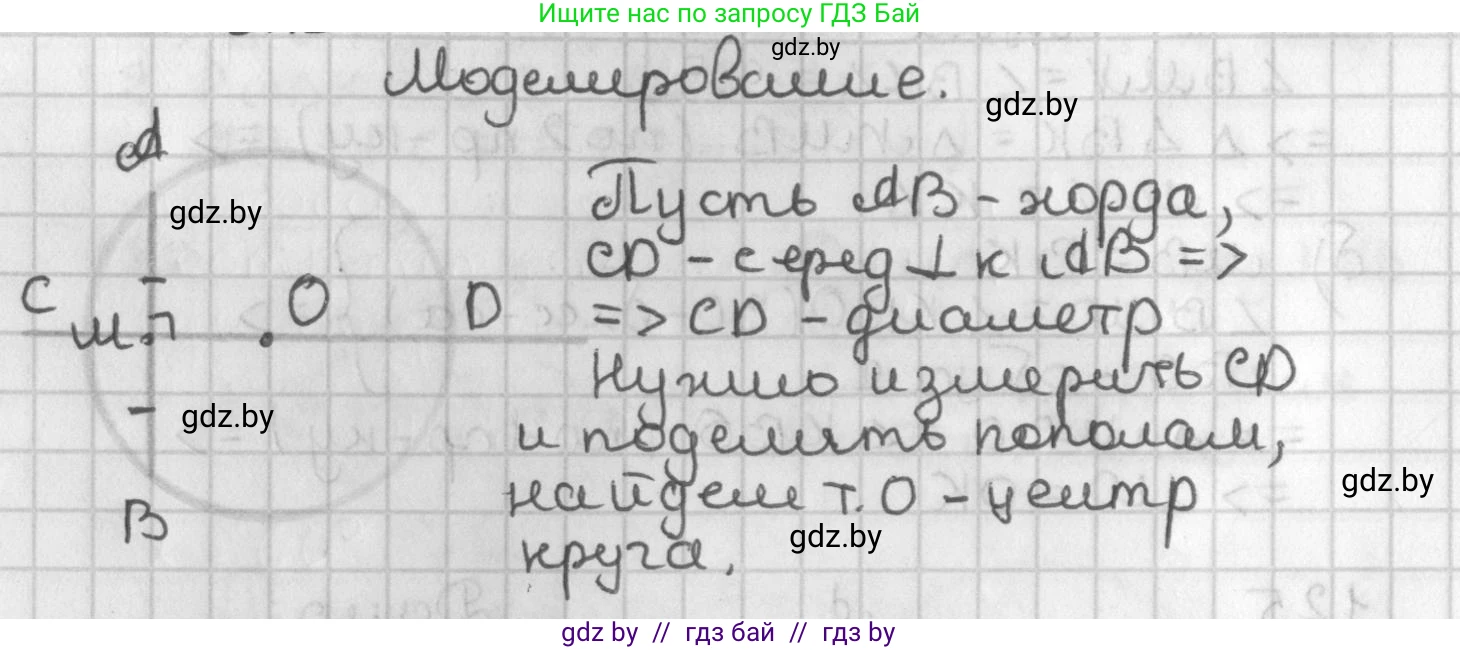 Ищите нас по запросу ГДЗ Бай
gdz.by
Моделирование.
gdz.by
A
gdz.by
Пусть AB - хорда,
CD - серед ⊥ к AB =>
C
M
O
D
=> CD - диаметр
Нужно измерить CD
gdz.by
и поделить пополам,
gdz.by
найдем т. O - центр
B
gdz.by
круга.
gdz.by // гдз бай // гдз by